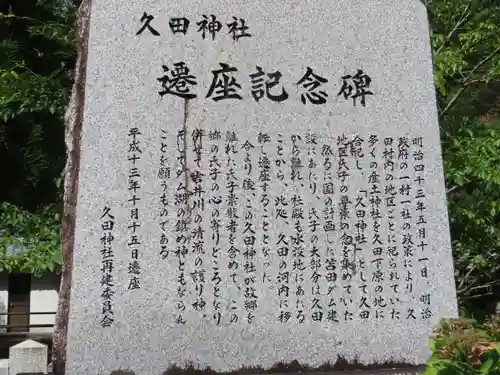 久田神社
遷座記念碑
明治四十三年五月十一日、明治
政府の一村一社の政策により、久
田村内の地区ごとに祀られていた
多くの産土神社を久田下原の地に
合祀し、「久田神社」として久田
地区氏子の尊崇の念を集めていた
然るに国の計画した苫田ダム建
設にあたり、氏子の大部分は久田
から離れ、社殿も水没地にあたる
ことから、此処、久田の河内に移
転し遷座することとなった
今より後、この久田神社が故郷を
離れた氏子崇敬者を含めて、この
郷の氏子の心の寄りどころとなり
併せて、吉井川の清流の護り神、
そしてダム湖の鎮め神ともならん
ことを願うものである
平成十三年十月十五日遷座
久田神社再建委員会